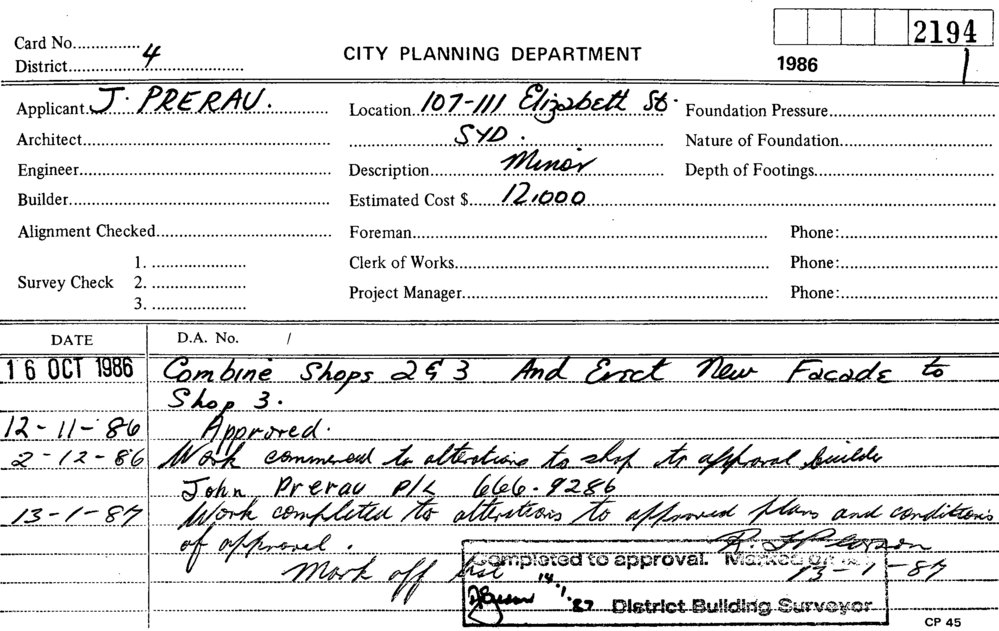 Card No...............
District 4
CITY PLANNING DEPARTMENT
2194
1986
1
Applicant J. PRERAU.
Location 107-111 Elizabeth St.
Foundation Pressure
Architect
SYD.
Nature of Foundation
Engineer
Description Minor
Depth of Footings
Builder
Estimated Cost $ 12,000
Alignment Checked
Foreman
Phone:
Survey Check
1.
2.
3.
Clerk of Works
Phone:
Project Manager
Phone:
DATE
D.A. No. /
16 OCT 1986 Combine Shops 2 & 3 And Erect New Facade to
Shop 3.
12-11-86 Approved.
2-12-86 Work commenced to alterations to shop to approval builder
John Prerau P/L 666-9286
13-1-87 Work completed to alterations to approved plans and conditions
of approval.
13-1-87
Mark off list
Completed to approval. Marked off
14.1.87 District Building Surveyor
CP 45